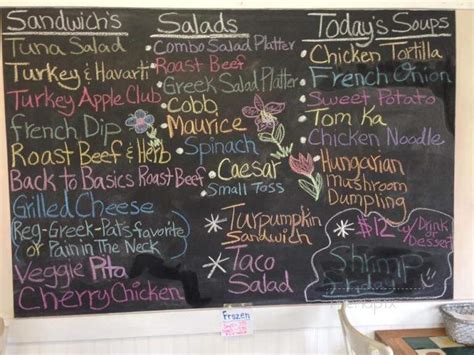 Sandwich's
Tuna Salad
Turkey & Havarti
Turkey Apple Club
French Dip
Roast Beef & Herb
Back to Basics Roast Beef
Grilled Cheese
(Reg-Greek-Pat's favorite
or Pain in The Neck
Veggie Pita
Cherry Chicken
Salads
Combo Salad Platter
Roast Beef
Greek Salad Platter
Cobb
Maurice
Spinach
Caesar
Small Toss
Turpumpkin
Sandwich
Taco
Salad
Today's Soups
Chicken Tortilla
French Onion
Sweet Potato
Tom Ka
Chicken Noodle
Hungarian
mushroom
Dumpling
$12 w/ Drink
Dessert
Shrimp
Frozen